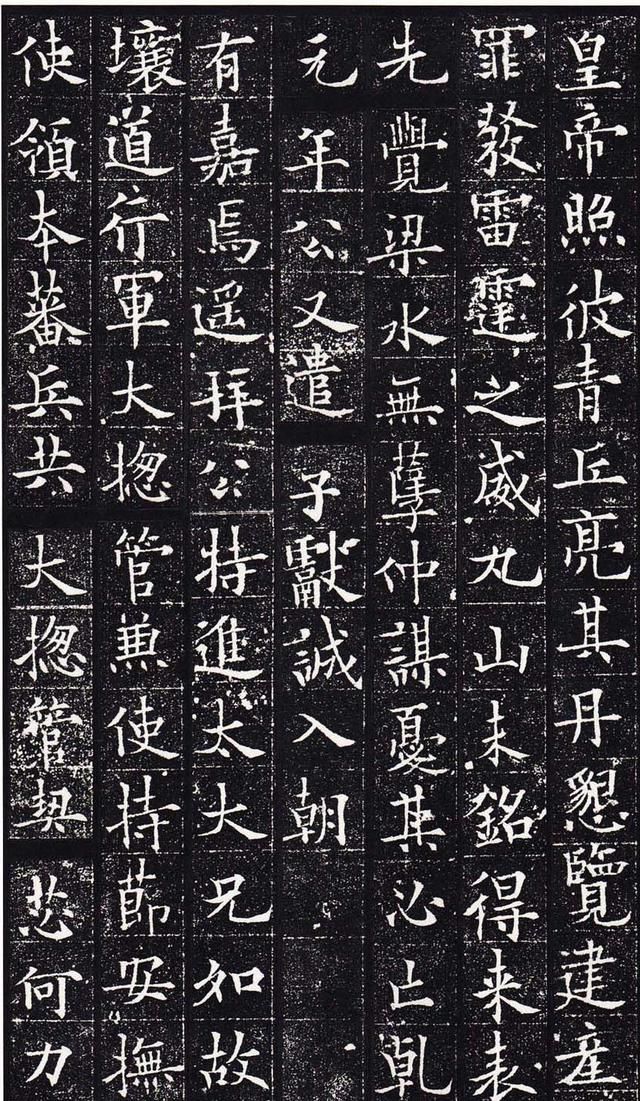 皇帝照彼青丘亮其丹懇覽建產
罪發雷霆之威丸山未銘得来表
先覺梁水無孽仲謀憂其必亡乹
元年公又遣子獻誠入朝
有嘉焉遥拜公特進太大兄如故
壤道行軍大揔管兼使持莭安撫
使領本蕃兵共大揔管契苾何力